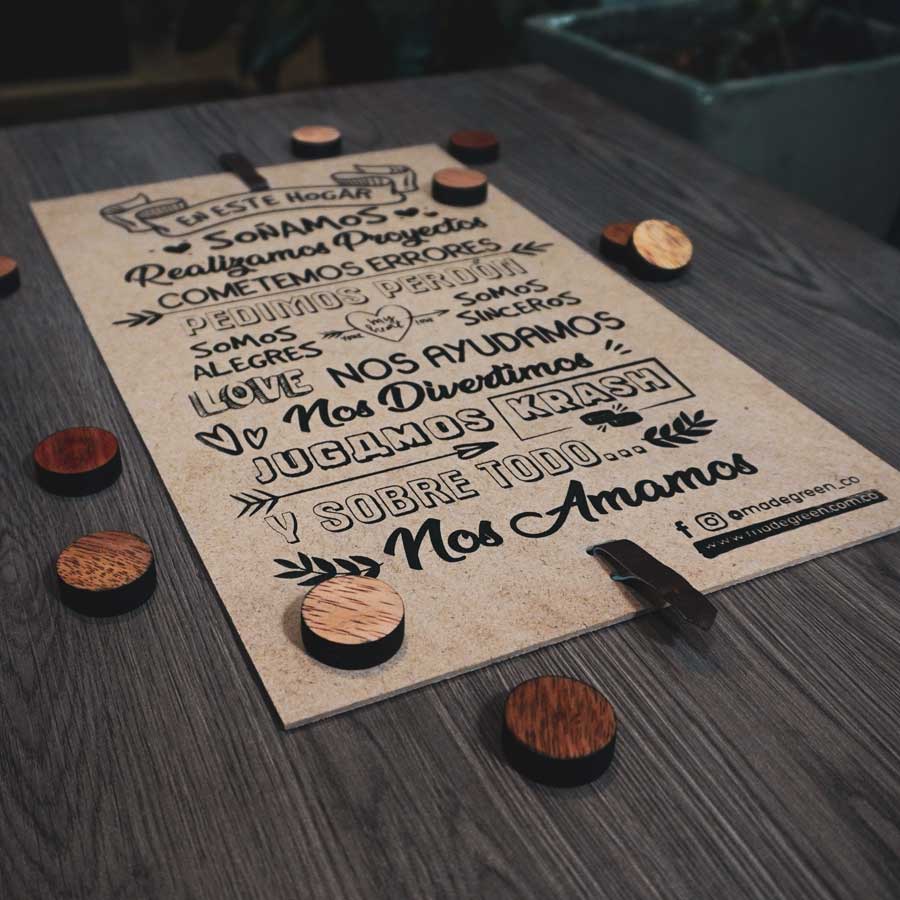 EN ESTE HOGAR
SOÑAMOS
Realizamos Proyectos
COMETEMOS ERRORES
PEDIMOS PERDÓN
SOMOS ALEGRES
my
SOMOS SINCEROS
LOVE NOS AYUDAMOS
Nos Divertimos
JUGAMOS KRASH
Y SOBRE TODO...
Nos Amamos
@madegreen_co
www.madegreen.com.co